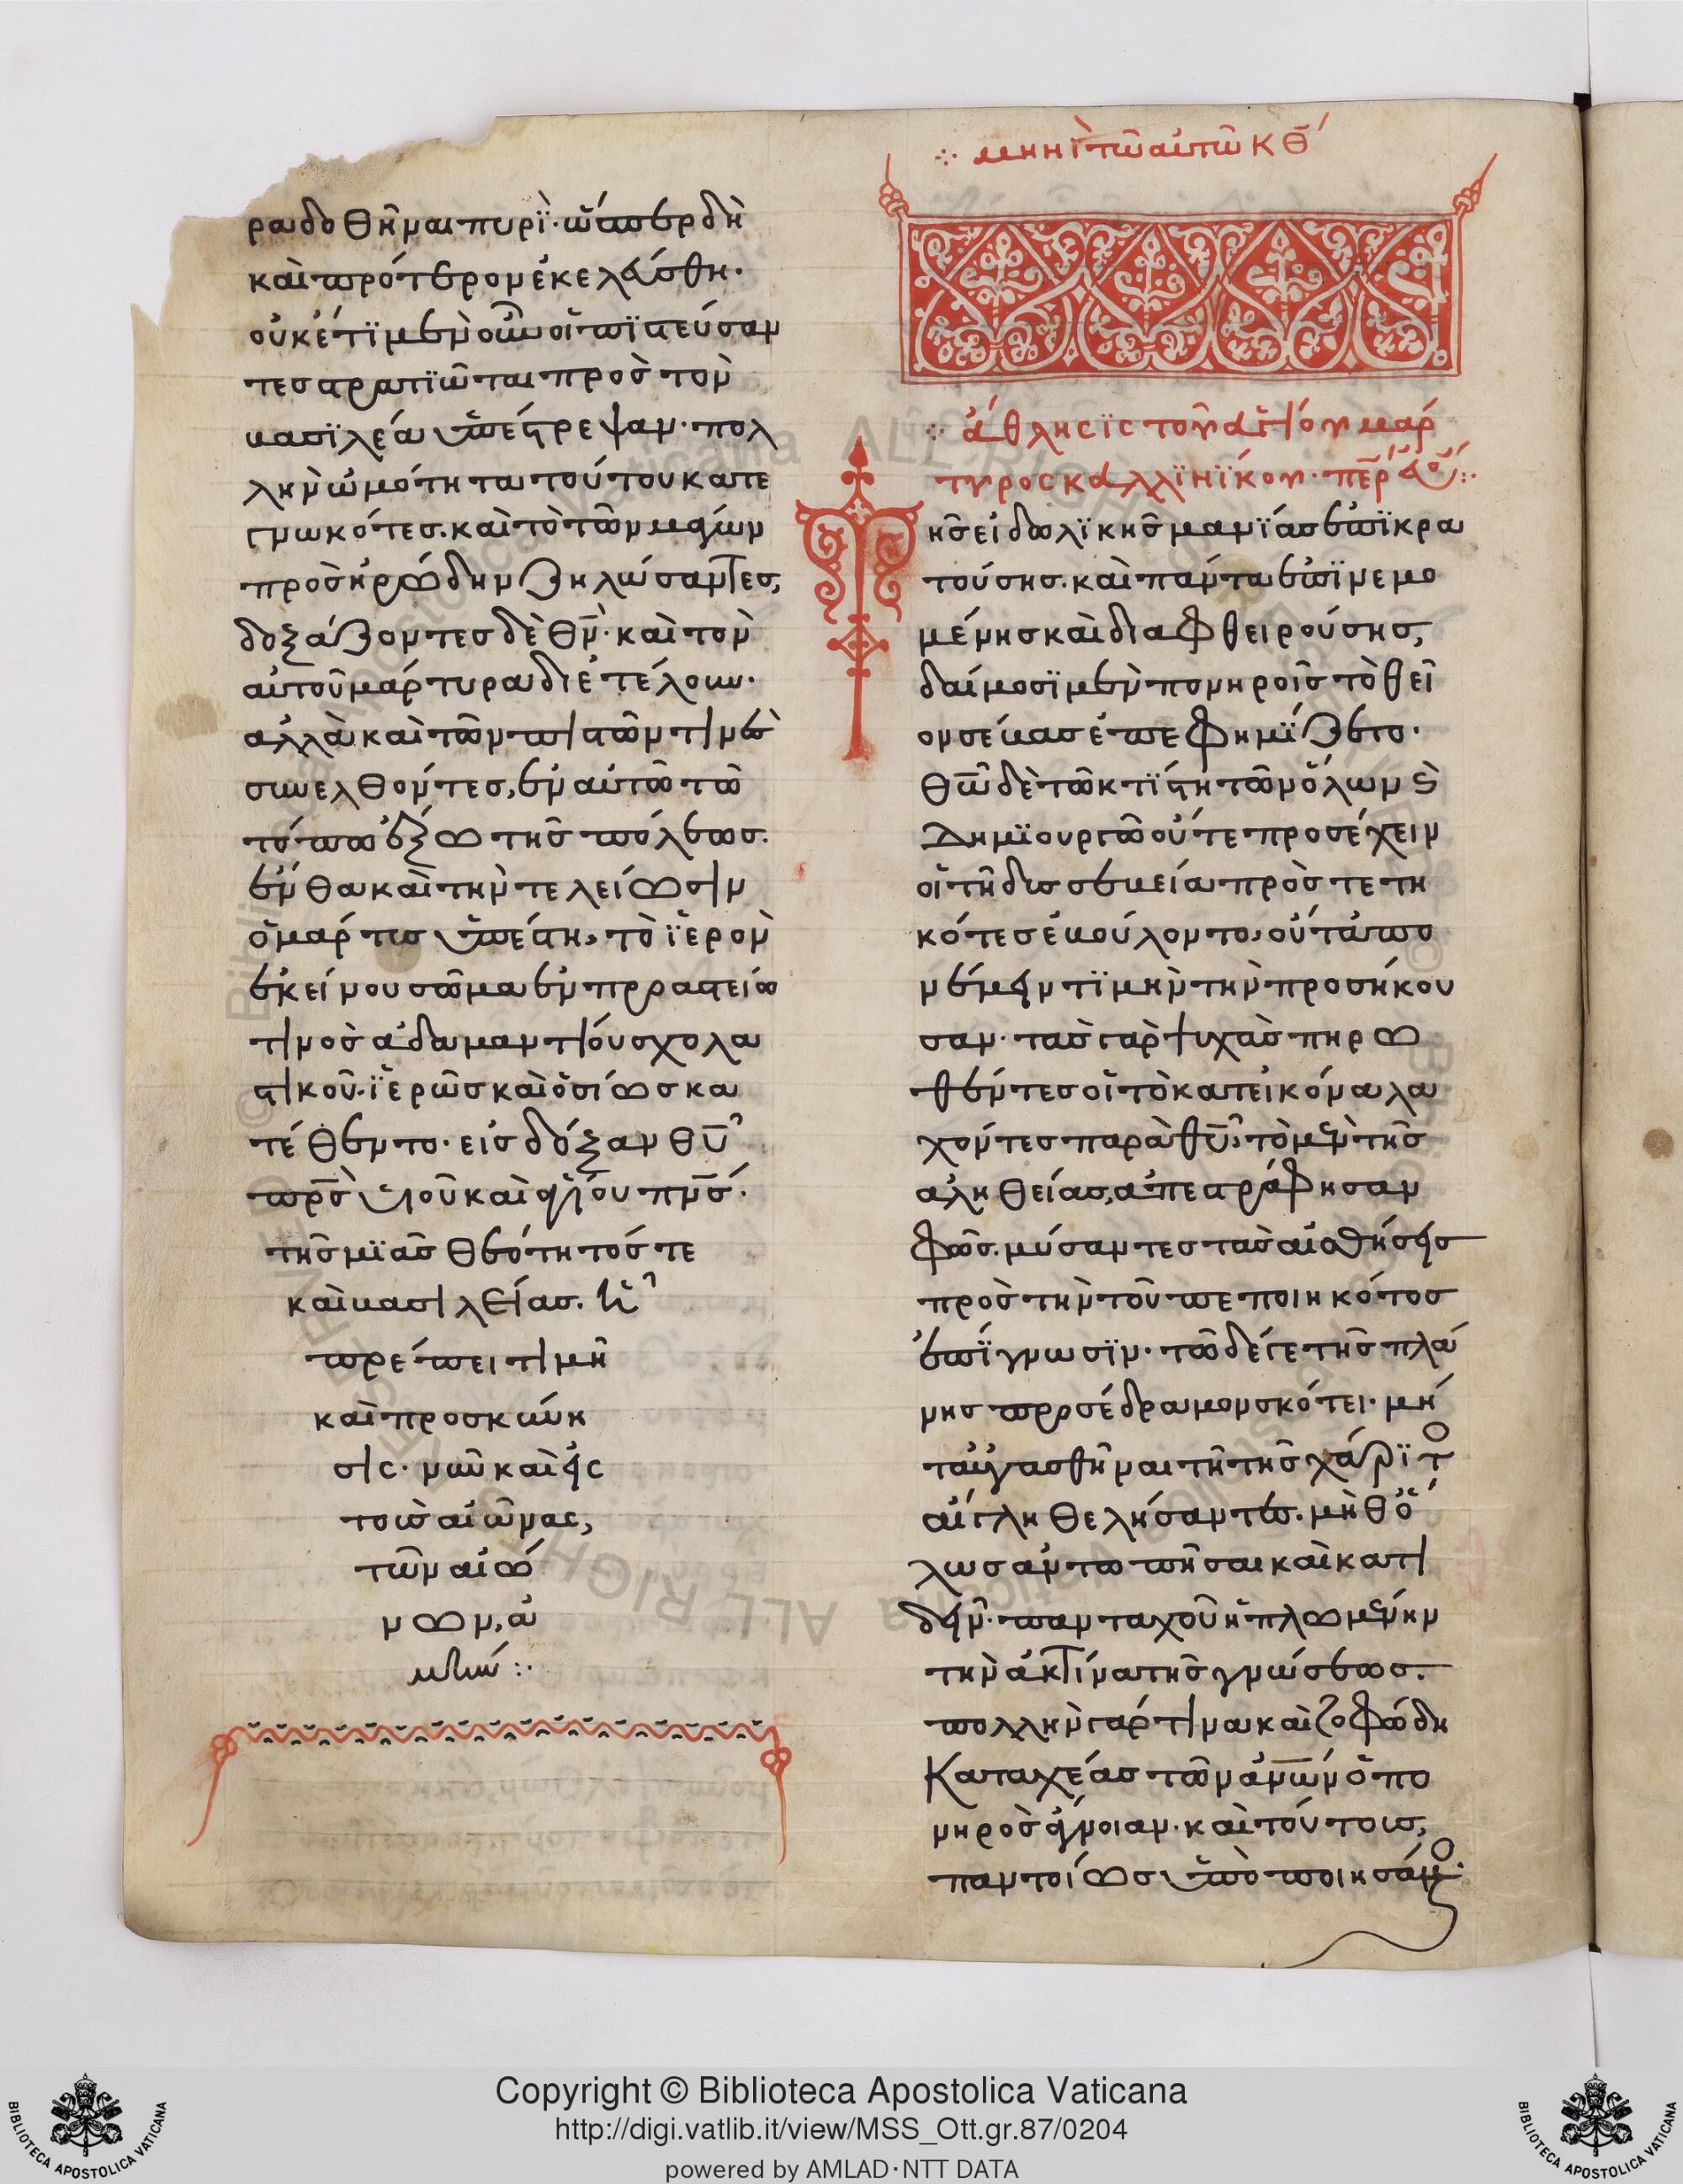 ραδοθῆναι πυρὶ· ὥσπερ δὴ
καὶ πρότερον ἐκελεύσθη·
οὐκέτι μὲν οὖν οἱ πιστεύσαν
τες στρατιῶται πρὸς τὸν
βασιλέα ὑπέστρεψαν· πολ
λὴν ὠμότητα τούτου κατε
γνωκότες. καὶ τὸ τῶν μάγων
πρὸς ἡρώδην ζηλώσαντες,
δοξάζοντες δὲ θν· καὶ τὸν
αὐτοῦ μάρτυρα διετέλουν·
ἀλλὰ καὶ τῶν πιστῶν τινὲς
συνελθόντες, ἐν αὐτῶ τῶ
τόπω ἔξω τῆς πόλεως.
ἔνθα καὶ τὴν τελείωσιν
ὁ μάρτυς ὑπέστη, τὸ ἱερὸν
ἐκείνου σῶμα ἐν προαστείω
τινὸς ἀδαμαντίου σχολα
στικοῦ· ἱερῶς καὶ ὁσίως κα
τέθεντο· εἰς δόξαν θυ
πρς υἱοῦ καὶ ἁγίου πνς·
τῆς μιᾶς θεότητός τε
καὶ βασιλείας. ἧ
πρέπει τιμὴ
καὶ προσκύνη
σις· νῦν καὶ εἰς
τοὺς αἰῶνας,
τῶν αἰώ
νων, ἀ
μήν :·
μηνὶ τῶ αὐτῶ κθ
ἄθλησις τοῦ ἁγίου μάρ
τυρος καλλινίκου· περ εὐ :·
Τῆς εἰδωλικῆς μανίας ἐπικρα
τούσης. καὶ πάντα ἐπινεμο
μένης καὶ διαφθειρούσης,
δαίμοσι μὲν πονηροῖς τὸ θεῖ
ον σέβας ἐπεφημίζετο·
θω δὲ τῶ κτίστη τῶν ὅλων καὶ
δημιουργῶ οὔτε προσέχειν
οἱ τῆ δυσσεβεία προστετη
κότες ἐβούλοντο, οὔτ' ἀπο
νέμειν τιμὴν τὴν προσήκου
σαν· τὰς γὰρ ψυχὰς πηρω
θέντες οἱ τὸ κατ' εἰκόνα λα
χόντες παρὰ θυ, τὸ μὲν τῆς
ἀληθείας, ἀπεστράφησαν
φῶς. μύσαντες τὰς αἰσθήσεις
πρὸς τὴν τοῦ πεποιηκότος
ἐπίγνωσιν· τῶ δέ γε τῆς πλά
νης προσέδραμον σκότει· μή
τ' αὐγασθῆναι τῆ τῆς χάριτος
αἴγλη θελήσαντες. μήθ' ὅ
λως ἀντωπῆσαι καὶ κατι
δεῖν· πανταχοῦ ἡπλωμένην
τὴν ἀκτίνα τῆς γνώσεως.
πολλὴν γάρ τινα καὶ ζοφώδη
καταχέας τῶν ἀνων ὁ πο
νηρὸς ἄγνοιαν· καὶ τούτοις,
παντοίως ὑποποιησάμενος·
Copyright © Biblioteca Apostolica Vaticana
http://digi.vatlib.it/view/MSS_Ott.gr.87/0204
powered by AMLAD·NTT DATA
BIBLIOTECA APOSTOLICA VATICANA
BIBLIOTECA APOSTOLICA VATICANA